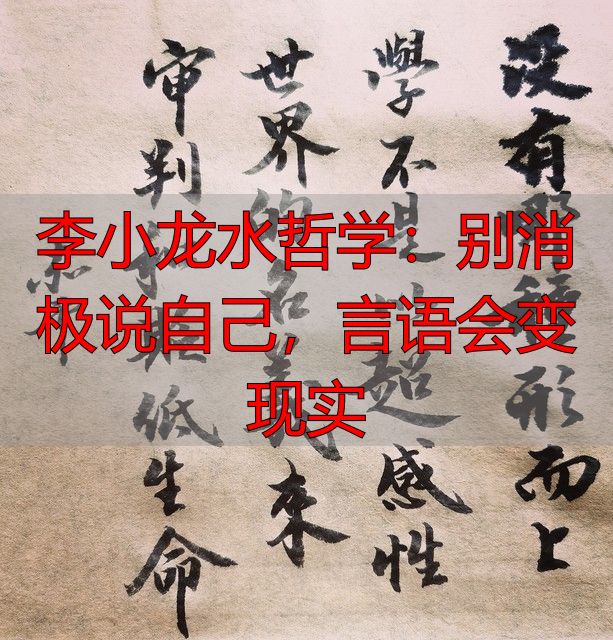 李小龙水哲学：别消
极说自己，言语会变
现实
没有種形而上
學不是超感性
世界的名義來
审判低生命